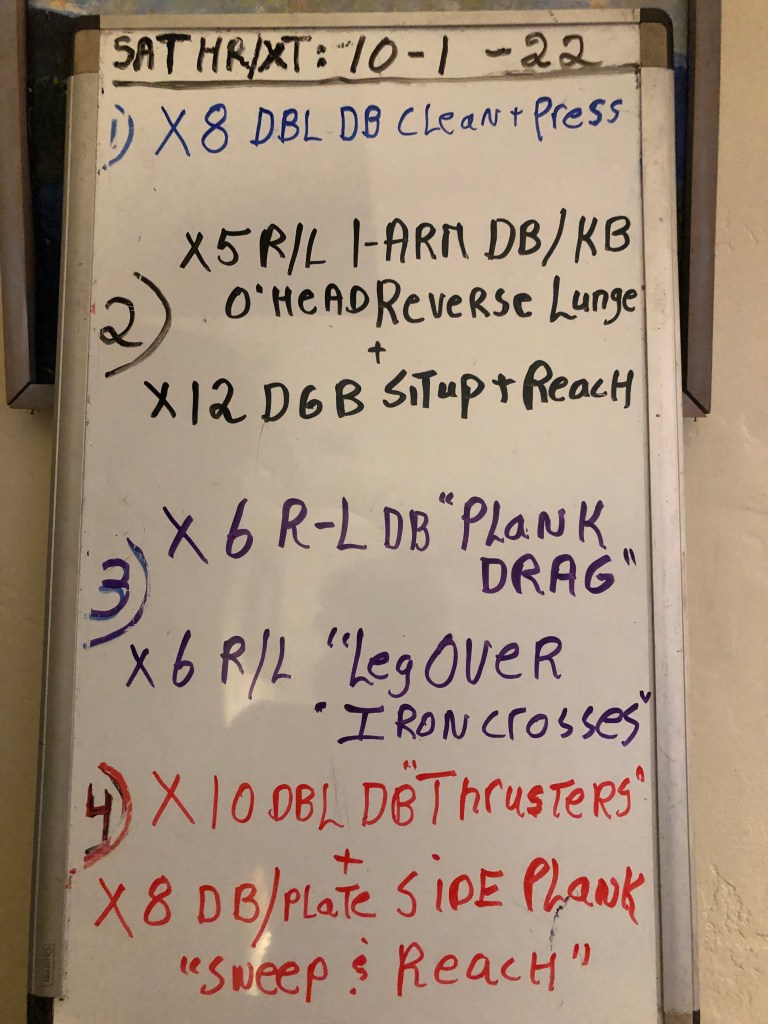 SAT HR/XT: 10-1-22
1) X8 DBL DB Clean + Press
X5 R/L 1-ARM DB/KB
2) O'HEAD Reverse Lunge
+
X12 DGB SiTup + ReacH
X6 R-L DB "PLaNK
3) DRAG"
X6 R/L "Leg OVeR
"IRON Crosses"
4) X10 DBL DB "ThrusTeRS"
+
X8 DB/PLaTe SiDE PLaNK
"Sweep & ReacH"